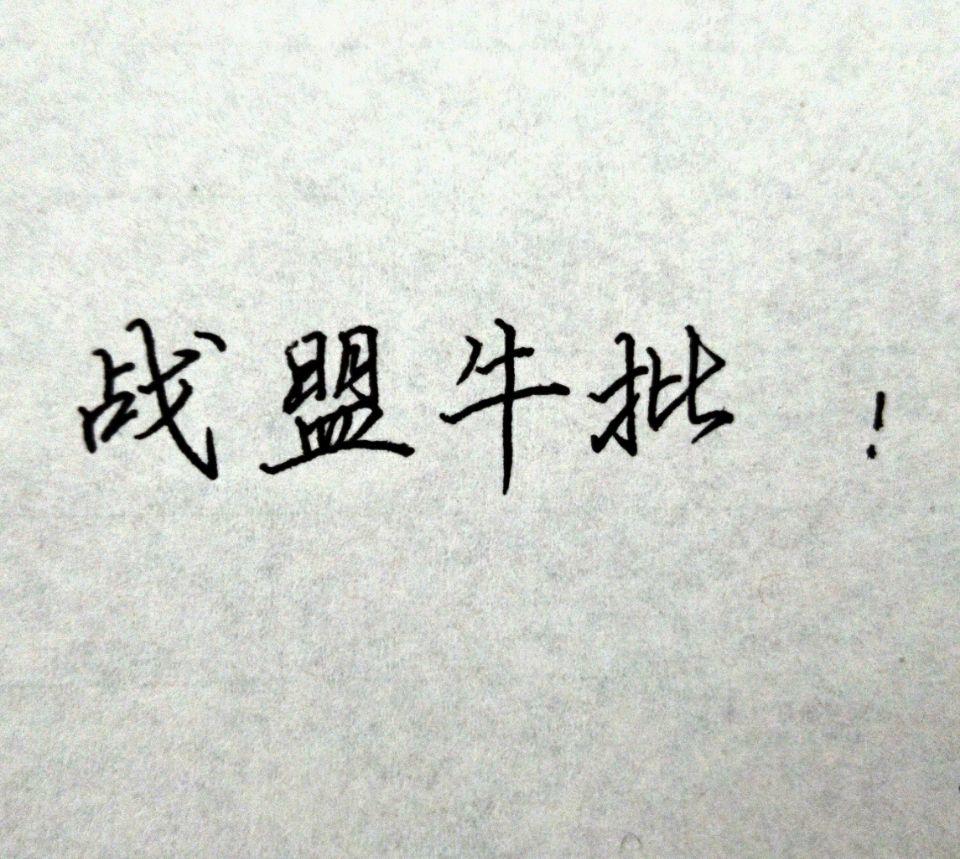 战盟牛批！